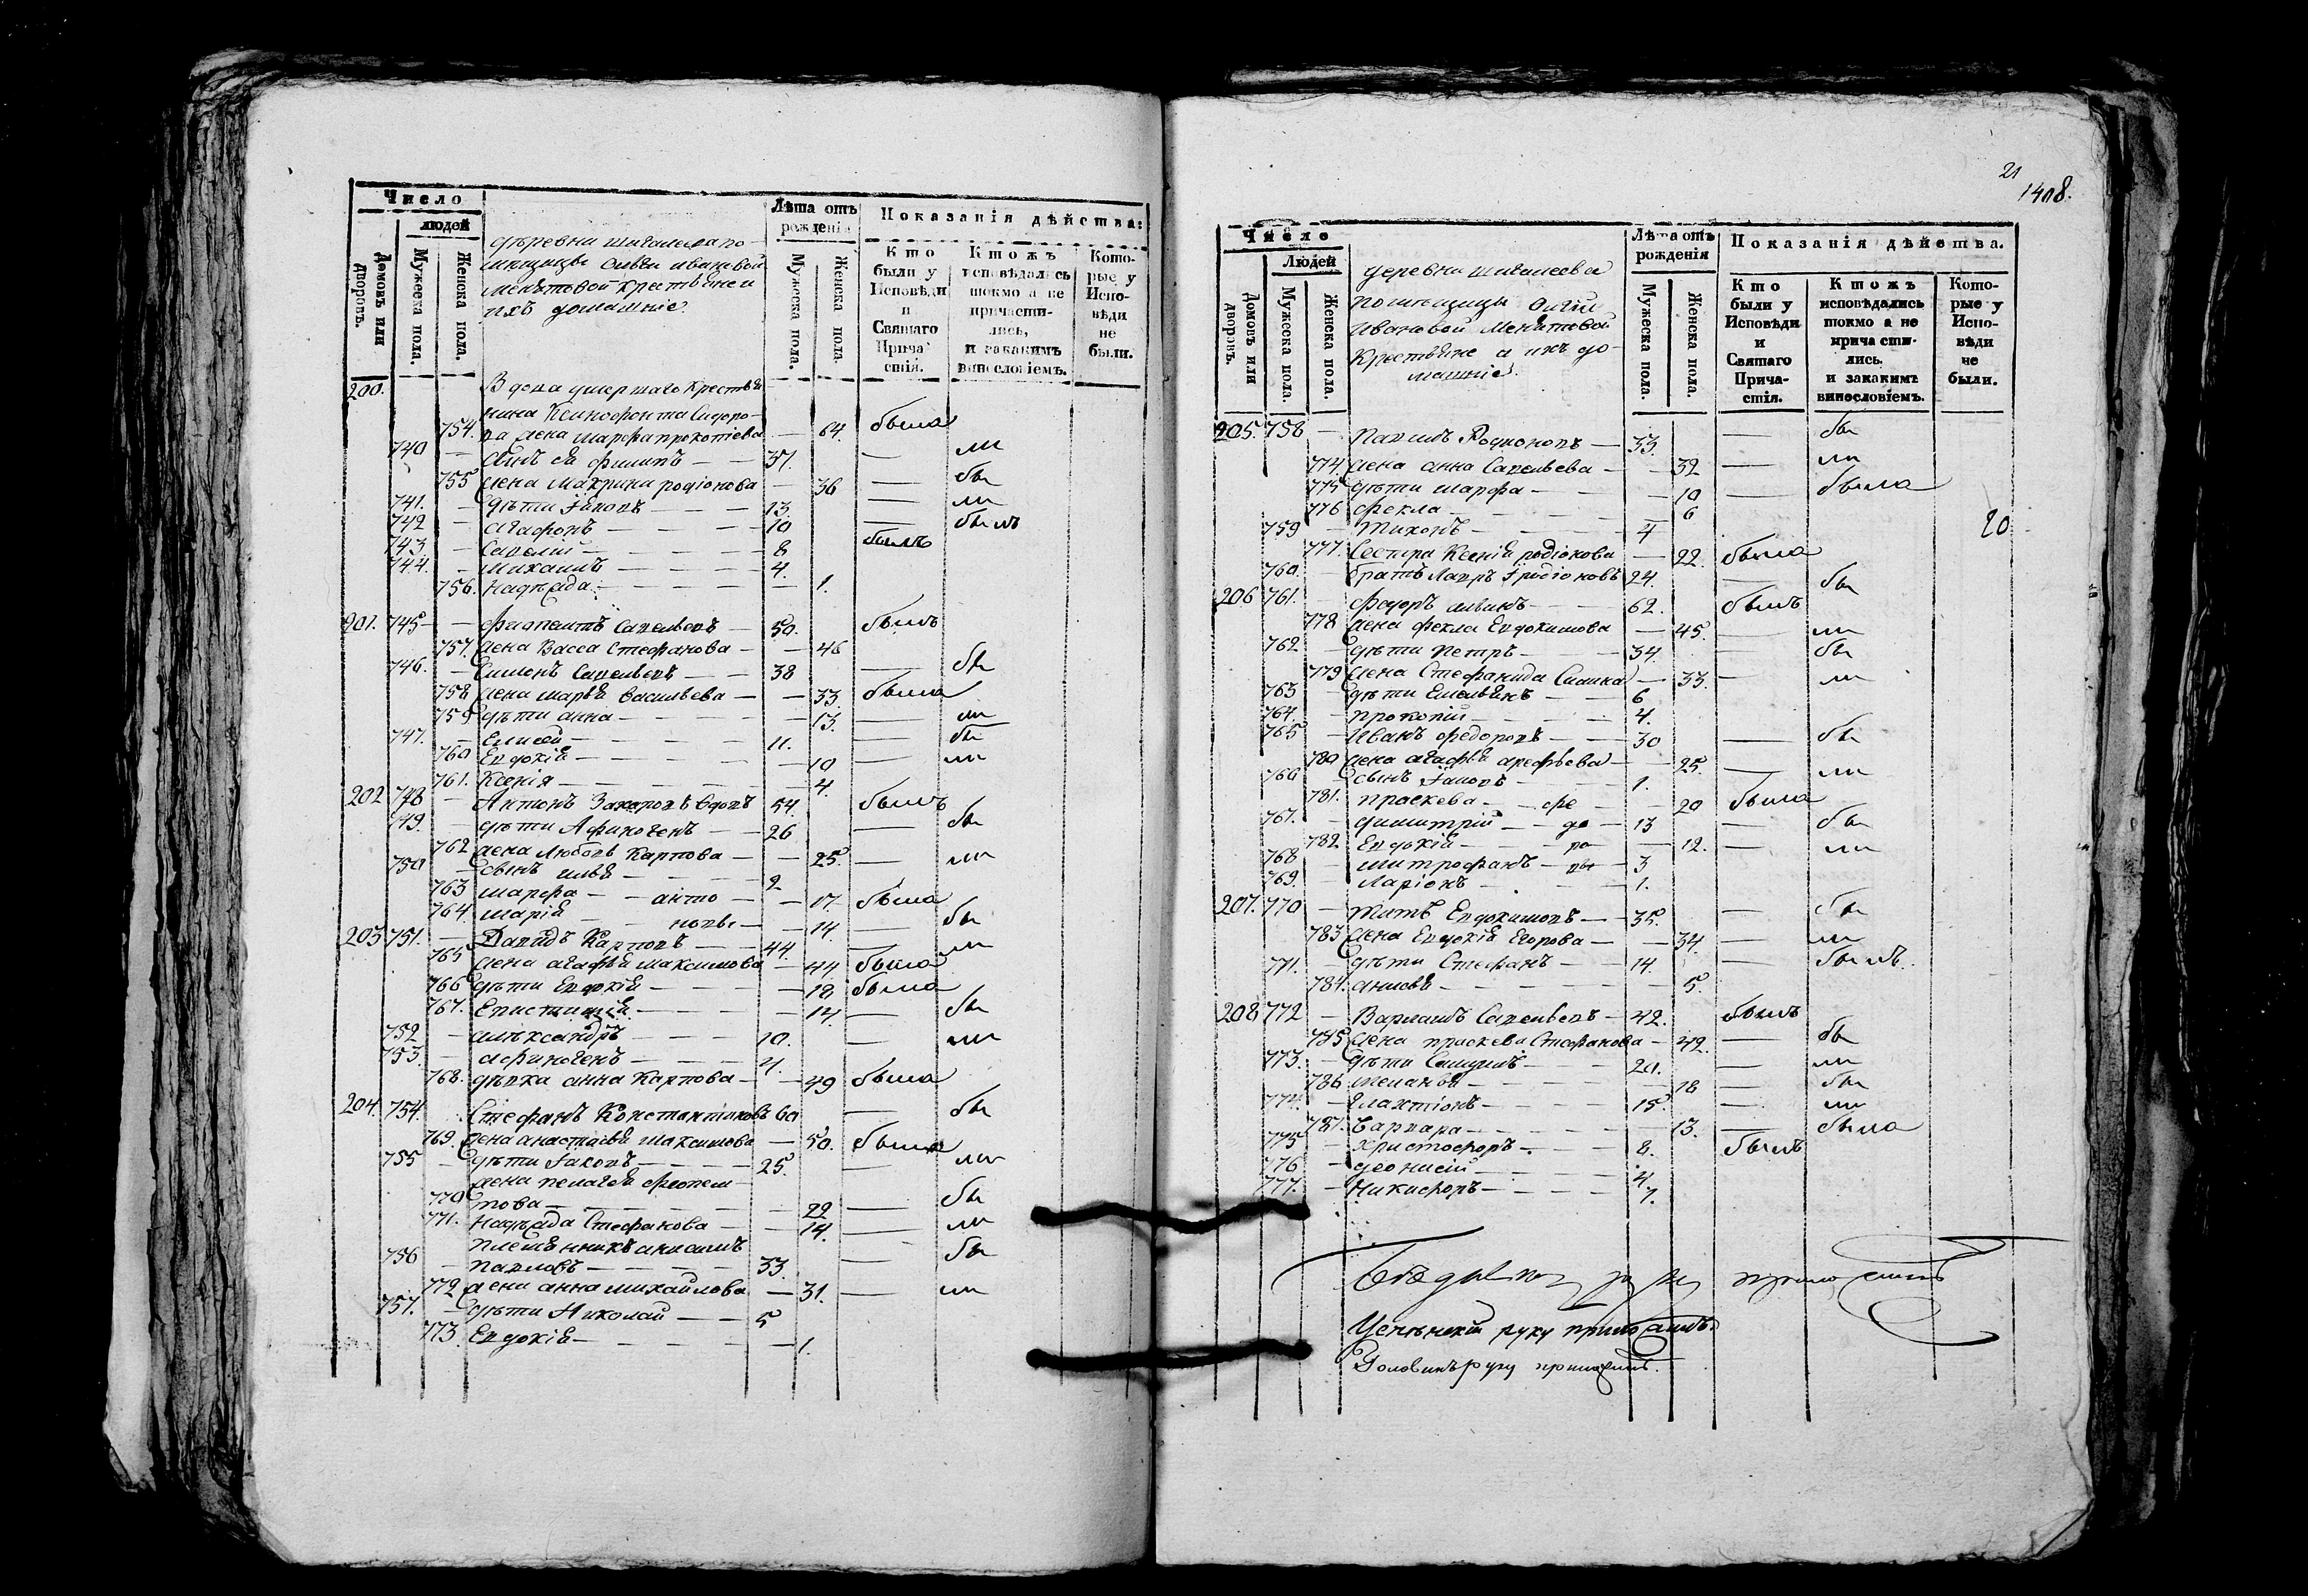 Число
людей
Домовъ или дворовъ.
Мужеска пола.
Женска пола.
деревни шигалеева по-
мѣщицы Ольги ивановой
крестьяне и
ихъ домашніе.
Лѣта отъ рожденія
Мужеска пола.
Женска пола.
Показанія дѣйства:
Кто были у Исповѣди и Святаго Причастія.
Ктожъ исповѣдались токмо а не причасти-лись, и закакимъ винословіемъ.
Кото-рые у Испо-вѣди не были.
200. Вдова умершаго крестья
нина Ксинофонта Сидоро-
754. ва жена марфа прокопіева — 64. была
740 — сынъ ея филипъ — — 37. — ли
755 жена Макрина родіонова — 36 — бы
741. — дѣти Іаковъ — — 13. — ли
742 — агафонъ — — 10 — былъ
743. — Савелій — — 8 былъ
744. — михаилъ — — 4.
756. надежда — — 1.
201. 745 — Савельевъ — 50. былъ
757. жена Васса Стефанова — — 46
746. — Симонъ Савельевъ — — 38 — бы
758 жена марья васильева — — 33. была
759 дѣти анна — — 13. — ли
747. — Елисей — — 11. — бы
760 Евдокія — — 10 — ли
761. Ксенія — — 4.
202 748 — Антонъ Захаровъ вдовъ 54. былъ
749. — дѣти Афиногенъ — — 26 — бы
762 жена Любовь Карпова — — 25. — ли
750 — сынъ илья — — 2
763 марфа — — анто — — 17. была
764. марія — новы — — 14. — бы
203 751. — Давидъ Карповъ — — 44. — ли
765 жена агафья максимова — 44 была
766 дѣти Евдокія — — 18 была
767. — — 14. — бы
752 — александръ — — 10. — ли
753. — афиногенъ — — 4.
768. дѣвка анна Карпова — — 49 была
204. 754. Стефанъ Константиновъ 60 — бы
769. жена анастасья максимова — 50. была
755 — дѣти Іаковъ — — 25. — ли
жена пелагея феопем-
770 това — — 22 — бы
771. надежда Стефанова — — 14. — ли
племянникъ анисимъ
756 — павловъ — — 33. — бы
772 жена анна михайлова — 31. — ли
757. — дѣти Николай — — 5
773. Евдокія — — 1.
21
1408.
Число
Людей
Домовъ или дворовъ.
Мужеска пола.
Женска пола.
деревни шигалеева
помѣщицы Ольги
ивановой
крестьяне и ихъ до-
машніе.
Лѣта отъ рожденія
Мужеска пола.
Женска пола.
Показанія дѣйства.
Кто были у Исповѣди и Святаго Прича-стія.
Ктожъ исповѣдались токмо а не прича сти-лись. и закакимъ винословіемъ.
Кото-рые у Испо-вѣди не были.
205. 758 — Родионовъ — 33. — бы
774. жена анна Савельева — — 32 — ли
775 дѣти марфа — — 10 — была
776 фекла — — 6
20
759 — Тихонъ — — 4
777. Сестра Ксенія родіонова — 22. была
760. — братъ Лавръ Іродіоновъ 24. — бы
206 761. — федоръ — — 62. былъ
778 жена фекла Евдокимова — 45. — ли
762 — дѣти петръ — — 34. — бы
779 жена Стефанида — 33. — ли
763 — дѣти Емельянъ — — 6
764. — прокопій — — 4.
765 — Иванъ федоровъ — — 30 — бы
780 жена агафья арефьева — — 25. — ли
766 — сынъ Іаковъ — — 1.
781. праскева — — фе — — 20 была
767. — димитрій — — до — 13 — бы
782 Евдокія — — ро — — 12. — ли
768 — митрофанъ — вы — 3
769. — Ларіонъ — — 1.
207. 770 — Титъ Евдокимовъ — — 35. — бы
783 жена Евдокія Егорова — — 34 — ли
771. — дѣти Стефанъ — — 14. — былъ.
784. — — 5.
208 772 — Варламъ Савельевъ — 42. былъ
785 жена праскева Стефанова — 42. — бы
773. — дѣти — — 20. — ли
786 меланья — — 18 — бы
774. — Галахтіонъ — — 15. — ли
787. Варвара — — 13. — была
775 — Христофоръ — — 8. былъ
776 — деонисій — — 4.
777. — Никифоръ — — 1.
руку приложилъ
руку приложилъ.
Головинъ руку приложилъ.